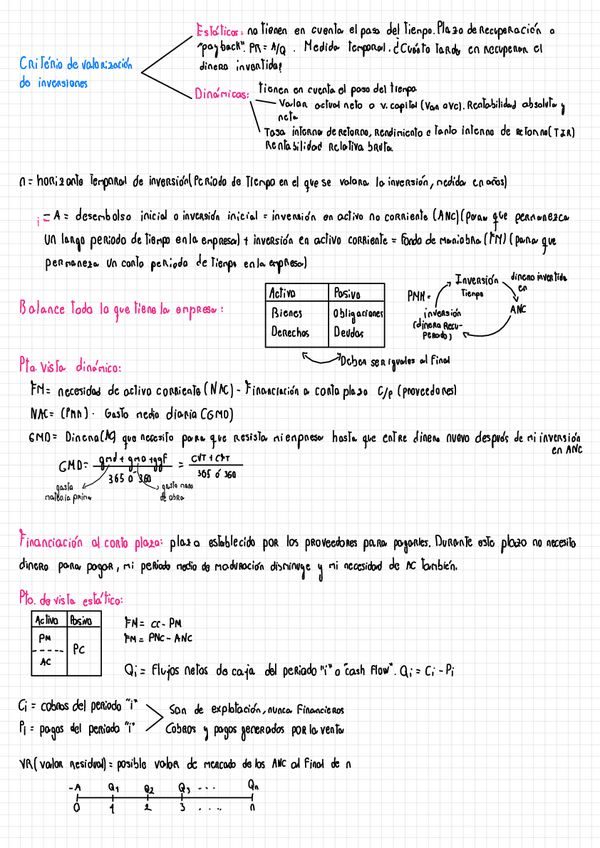 Criterio de valorización
de inversiones
Estáticos: no tienen en cuenta el paso del tiempo. Plazo de recuperación o
"payback". PR = A/Q. Medida temporal. ¿Cuánto tardo en recuperar el
dinero invertido?
Dinámicos: Tienen en cuenta el paso del tiempo
Valor actual neto o v. capital (Van o VC). Rentabilidad absoluta y
neta
Tasa interna de retorno, rendimiento o tanto interno de retorno (TIR)
Rentabilidad Relativa bruta
n = horizonte temporal de inversión (Periodo de Tiempo en el que se valora la inversión, medida en años)
i = A = desembolso inicial o inversión inicial = inversión en activo no corriente (ANC) (para que permanezca
un largo periodo de tiempo en la empresa) + inversión en activo corriente = Fondo de Maniobra (FM) (para que
permanezca un corto periodo de tiempo en la empresa)
Balance Todo lo que tiene la empresa:
Activo Pasivo
Bienes Obligaciones
Derechos Deudas
Deben ser iguales al final
PMM =
Inversión
Tiempo
dinero invertido
en
ANC
inversión
(dinero Recu-
perado)
Pto vista dinámico:
FM = necesidad de activo corriente (NAC) - Financiación a corto plazo C/p (proveedores)
NAC = (PMM) · Gasto medio diario (GMD)
GMD = Dinero (AC) que necesito para que resista mi empresa hasta que entre dinero nuevo después de mi inversión
en ANC
GMD = gmd + gmo + ggf / 365 ó 360 = CVT + CFT / 365 ó 360
gasto
materia prima
gasto mano
de obra
Financiación al corto plazo: plazo establecido por los proveedores para pagarles. Durante este plazo no necesito
dinero para pagar, mi periodo medio de maduración disminuye y mi necesidad de AC también.
Pto. de vista estático:
Activo Pasivo
PM
AC
PC
FM = CC - PM
FM = PNC - ANC
Qi = Flujos netos de caja del periodo "i" o "cash flow". Qi = Ci - Pi
Ci = cobros del periodo "i"
Pi = pagos del periodo "i"
Son de explotación, nunca Financieros
Cobros y pagos generados por la venta
VR (valor residual) = posible valor de mercado de los ANC al final de n
-A Q1 Q2 Q3 ... Qn
0 1 2 3 .... n